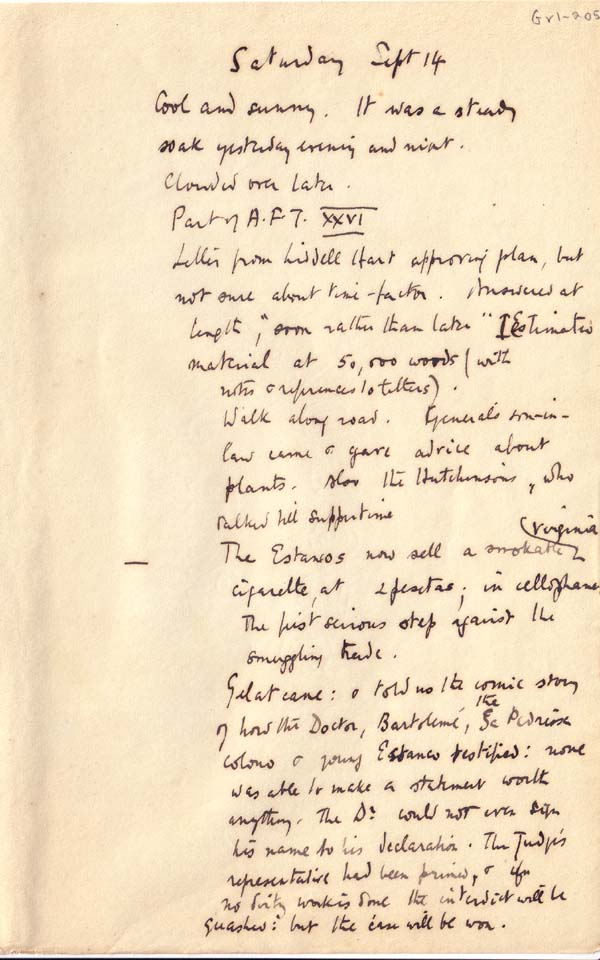 Gv1-205
Saturday Sept 14
Cool and sunny. It was a steady
soak yesterday evening and night.
Clouded over later.
Part of A.F.T. XXVI
Letter from Liddell Hart approving plan, but
not sure about time-factor. Answered at
length, "soon rather than later" [Estimated
material at 50,000 words (with
notes & references to letters).
Walk along road. General's son-in-
law came & gave advice about
plants. Also the Hutchinsons, who
talked till suppertime
(Virginia
The Estancos now sell a smokable
cigarette, at 2 pesetas; in cellophane.
The first serious step against the
smuggling trade.
Gelat came: & told us the comic story
the
of how the Doctor, Bartolemé, Sa Pedrissa
colono & young Estanco testified: none
was able to make a statement worth
anything. The Dr. could not even sign
his name to his declaration. The Judge's
representative had been primed, & if
no dirty work is done the interdict will be
quashed: but the case will be won.